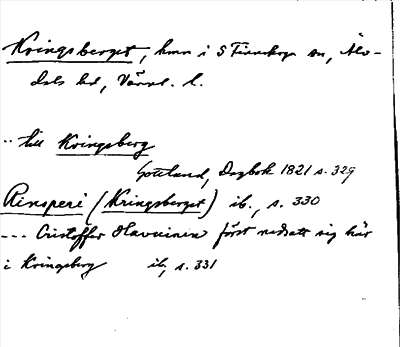 Kringsberget, hmn i S Finnskoga sn, Älv-
dals hd, Värml. l.
.. till Kringsberg
Gottlund, Dagbok 1821 s. 329
Rinsperi (Kringsberget) ib., s. 330
--- Cristoffer Havuinen först nedsatt sig här
i Kringsberg ib, s. 331